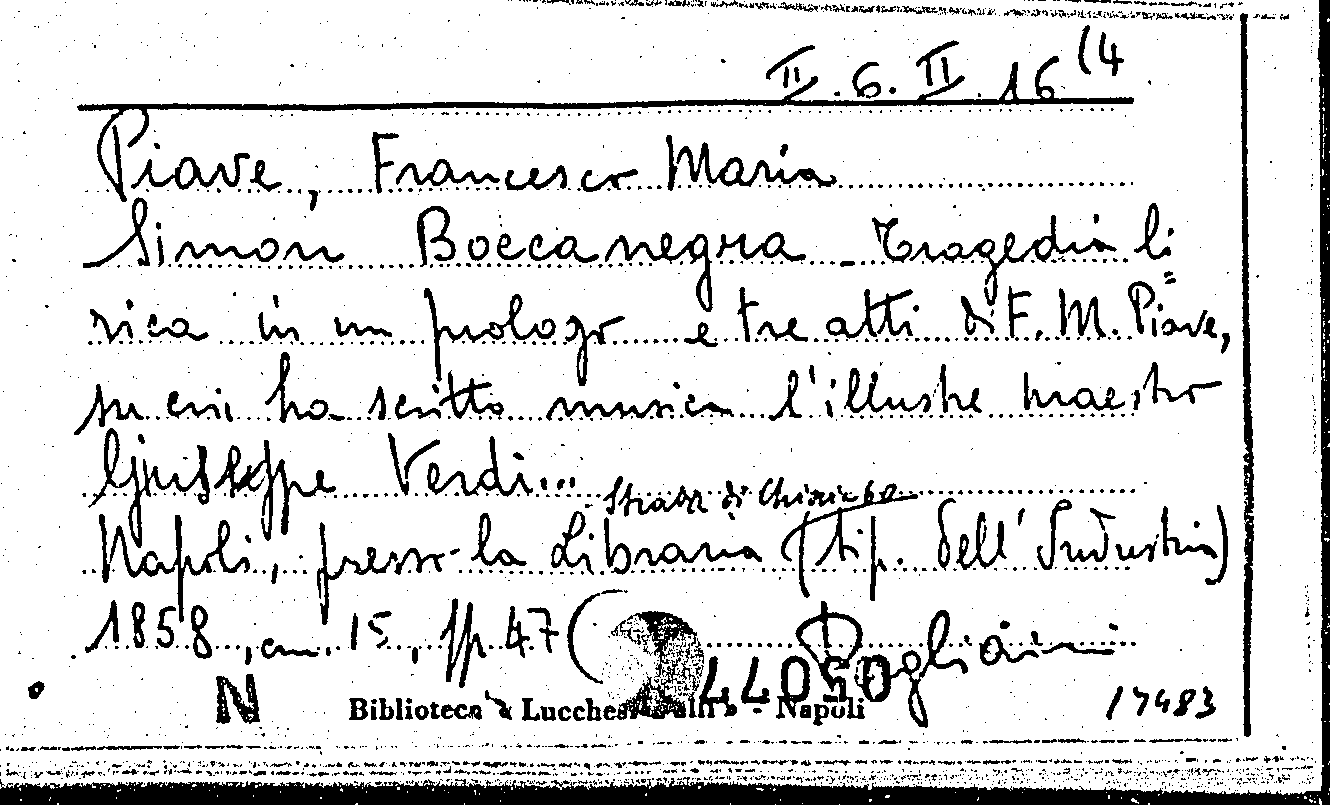 II.6.II.16 (4
Piave, Francesco Maria
Simon Boccanegra - Tragedia li=
rica in un prologo e tre atti di F. M. Piave,
su cui ha scritto musica l'illustre maestro
Giuseppe Verdi...
Napoli, presso la Libraria Strada di Chiaia 60 (tip. dell'Industria)
1858, cm. 15, pp. 47 (
Pagliaini
N Biblioteca Lucchesi Palli - Napoli
17483